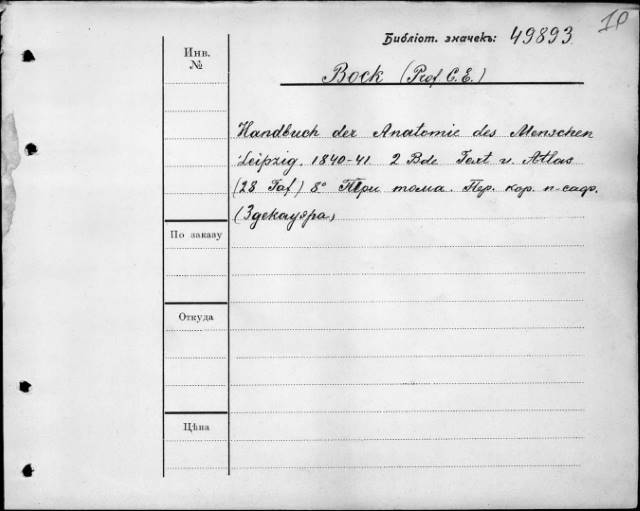 10
Библіот. значекъ: 49893
Инв.
№
Bock (Prof C. E.)
Handbuch der Anatomie des Menschen
Leipzig. 1840-41 2 Bde Text u. Atlas
(28 Taf) 8° Три тома. Пер. кор. п-сафр.
(Здекауэра)
По заказу
Откуда
Цѣна